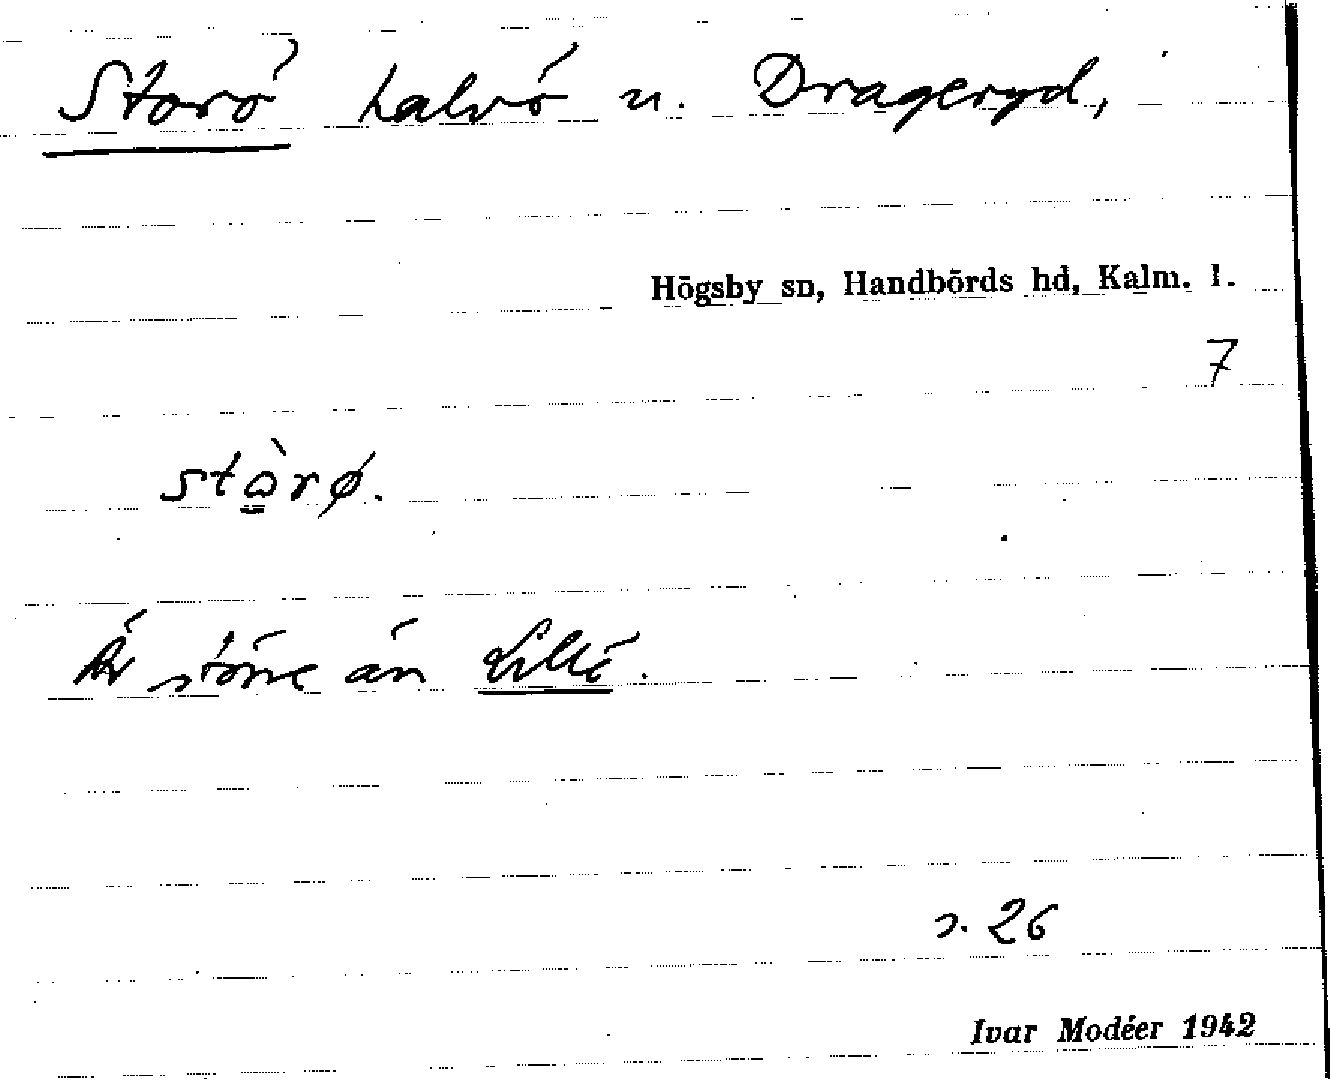 Storö halvö n. Drageryd,
Högsby sn, Handbörds hd, Kalm. l.
7
stὼ̲rø.
Är större än Lillö.
s. 26
Ivar Modéer 1942